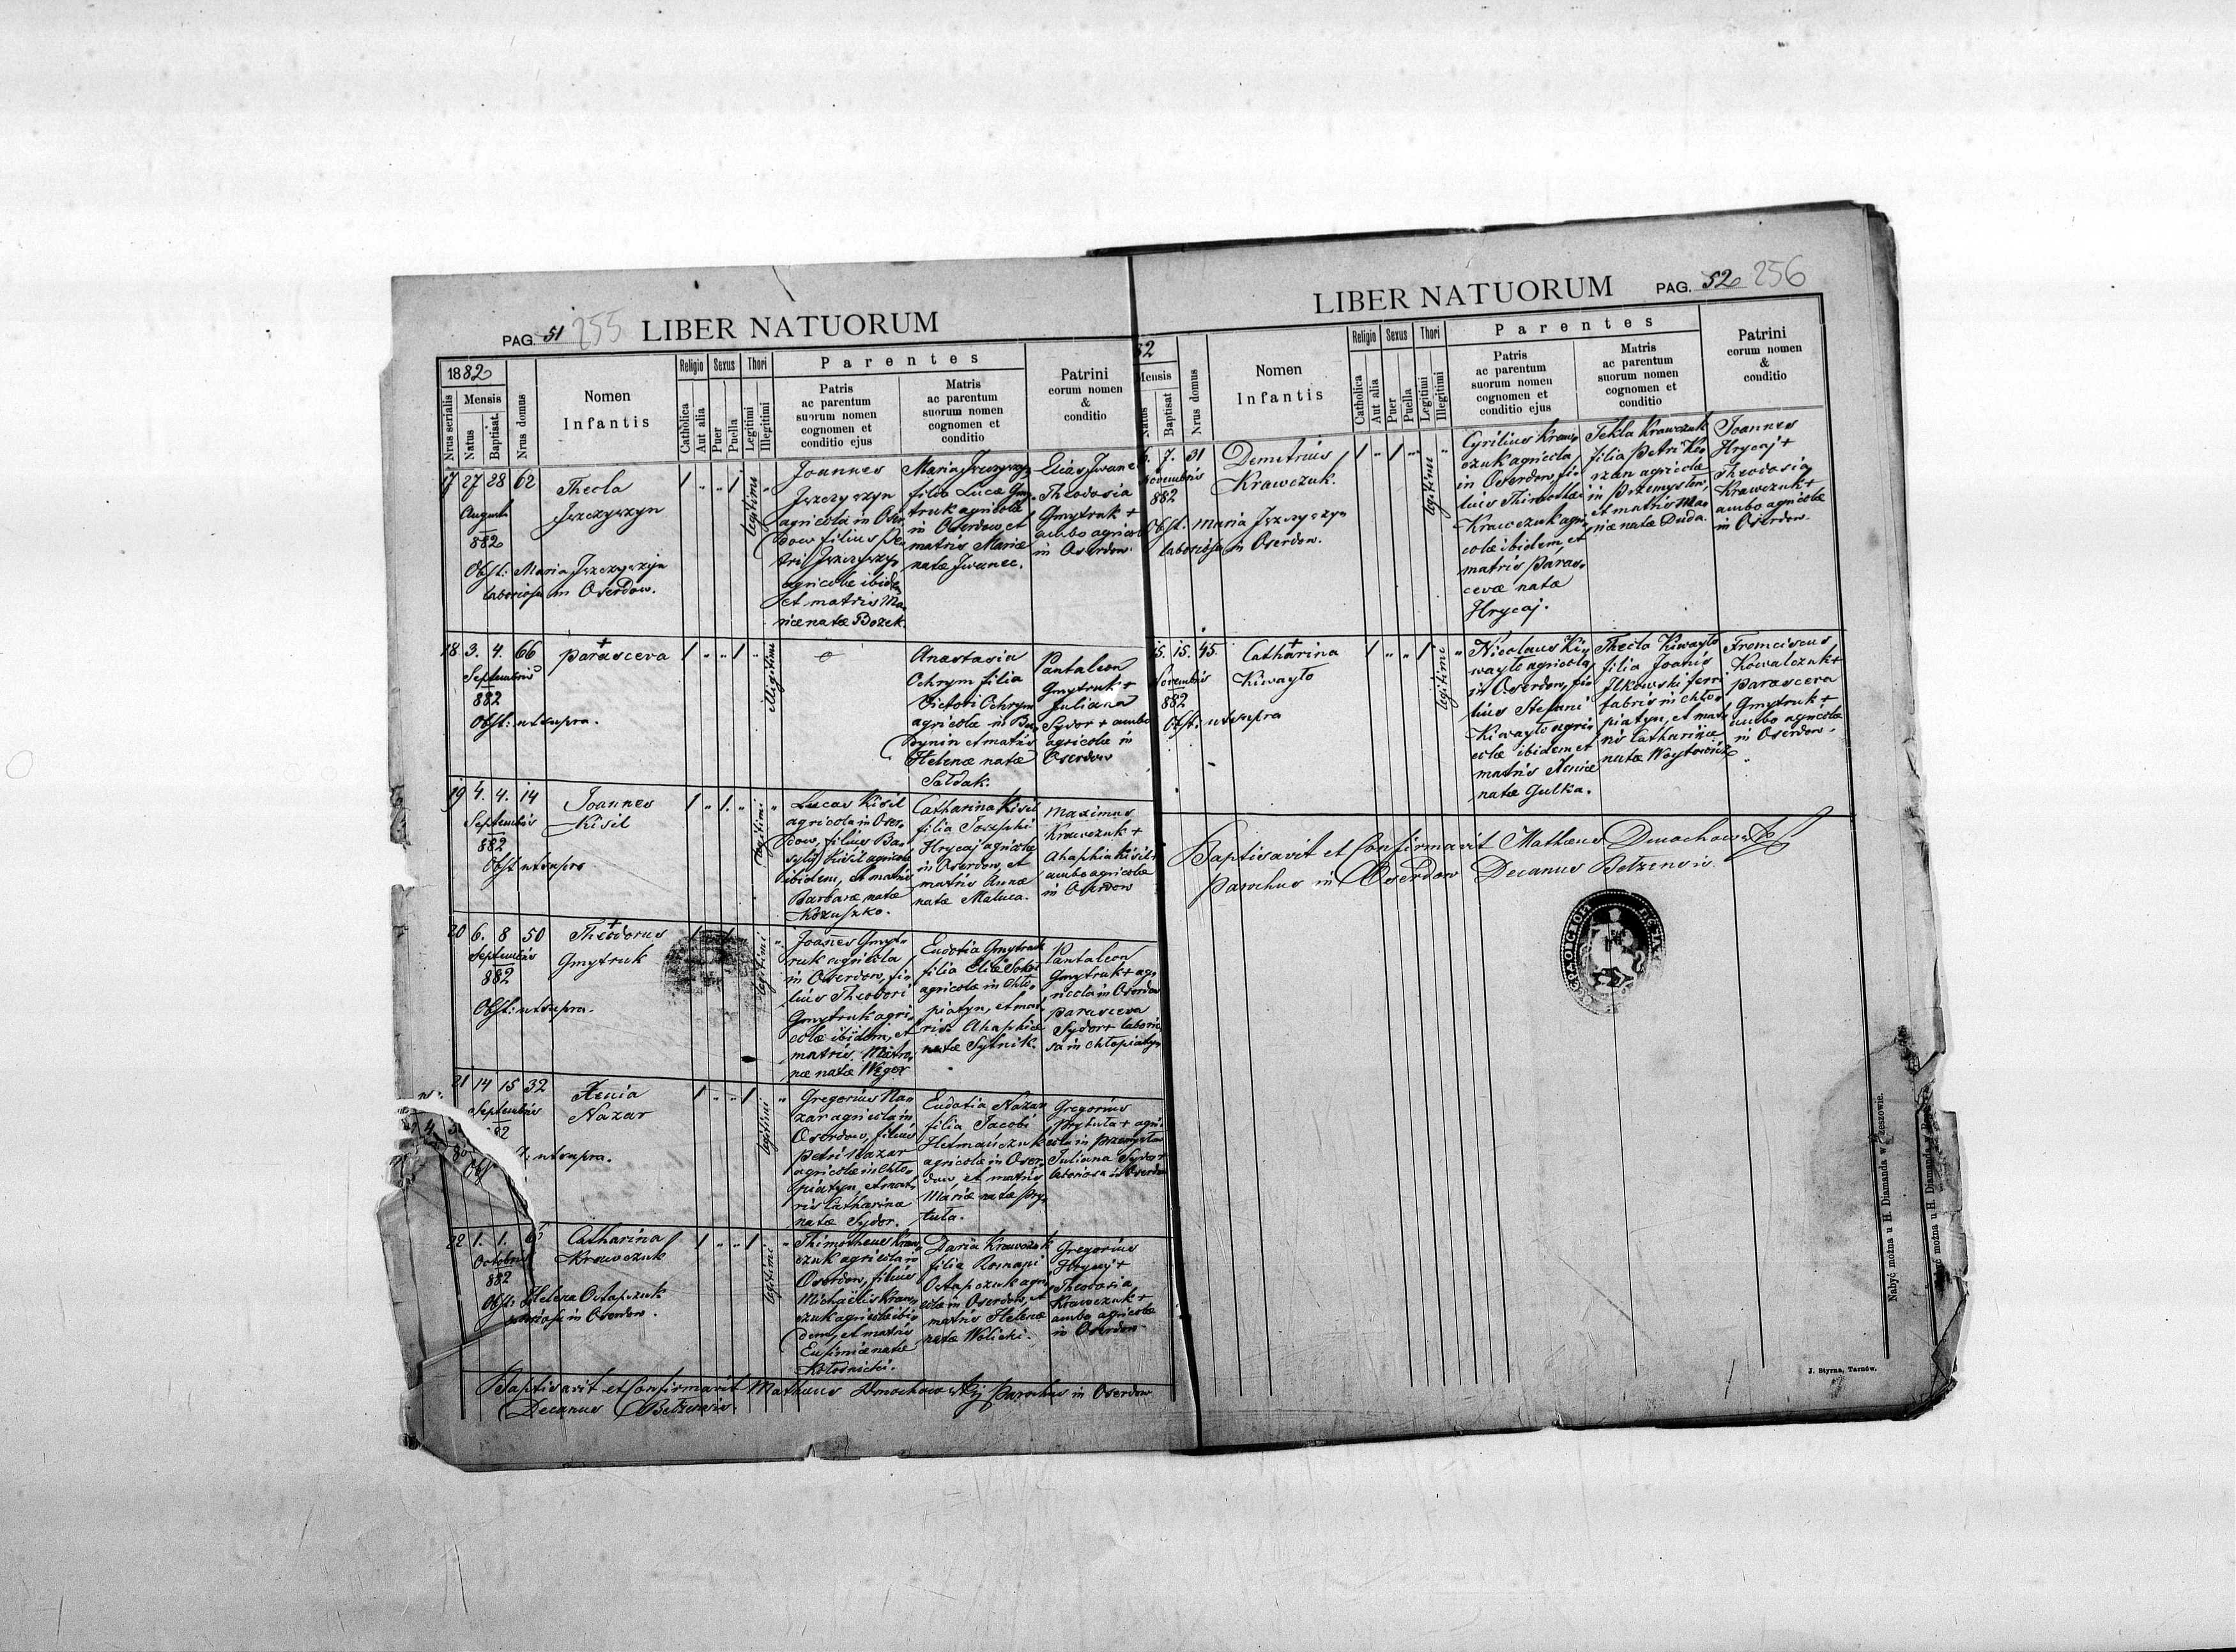 PAG. 51 255 LIBER NATUORUM
1882
Nrus serialis
Mensis
Natus
Baptisat.
Nrus domus
Nomen
Infantis
Religio
Catholica
Aut alia
Sexus
Puer
Puella
Thori
Legitimi
Illegitimi
Parentes
Patris
ac parentum
suorum nomen
cognomen et
conditio ejus
Matris
ac parentum
suorum nomen
cognomen et
conditio
Patrini
eorum nomen
&
conditio
17 27 28 62
Augusti
882
Thecla
Jszczyszyn
Obst: Maria Jszczyszyn
laboriosa in Oserdow.
legitimi
Joannes
Jszczyszyn
agricola in Oser,
dow filius Pe
tri Jszczyszyn
agricolæ ibidem
et matris Ma,
riæ natæ Bozek.
Maria Jszczyszyn
filia Lucæ Gmy,
truk agricolæ
in Oserdow, et
matris Mariæ
natæ Jwanec.
Elias Jwanec
Theodosia
Gmytruk +
ambo agricolæ
in Oserdow.
18 3. 4. 66
Septembris
882
Parasceva
Obst: ut supra.
illegitimi
Anastasia
Ochrym filia
Victori Ochrym
agricolæ in Bu,
dynin et matris
Helenæ natæ
Sałdak.
Pantaleon
Gmytruk +
Juliana
Sydor + ambo
agricolæ in
Oserdow
19 4. 4. 14
Septembris
882
Joannes
Kisil
Obst: ut supra
legitimi
Lucas Kisil
agricola in Oser,
dow, filius Ba,
sylii Kisil agricolæ
ibidem, et matris
Barbaræ natæ
Kozuszko.
Catharina Kisil
filia Josephi
Hrycaj agricolæ
in Oserdow, et
matris Annæ
natæ Maluca.
Maximus
Krawczuk +
Ahaphia Kisil +
ambo agricolæ
in Oserdow
20 6. 8 50
Septembris
882
Theodorus
Gmytruk
Obst: ut supra.
legitimi
Joannes Gmyt,
ruk agricola
in Oserdow, fi,
lius Theodori
Gmytruk agri,
colæ ibidem, et
matris Matro,
næ natæ Węger
Eudotia Gmytruk
filia Eliæ
agricolæ in Chło,
piatyn, et mat,
ris Ahaphiæ
natæ Sytnik.
Pantaleon
Gmytruk + ag,
ricola in Oserdow
Parasceva
Sydor + laborio,
sa in Chłopiatyn
21 14 15 32
Septembris
882
Xenia
Nazar
ut supra.
legitimi
Gregorius Na,
zar agricola in
Oserdow, filius
Petri Nazar
agricolæ in Chło,
piatyn, et mat,
ris Catharinæ
natæ Sydor.
Eudotia Nazar
filia Jacobi
Hetmańczuk
agricolæ in Oser,
dow, et matris
Mariæ natæ Pry,
tuła.
Gregorius
Prytuła + agri,
cola in Przemysłow
Juliana Sydor +
laboriosa in Oserdow
22 1. 1.
Octobris
882
Catharina
Krawczuk
Obst: Helena Ostapczuk
in Oserdow.
legitimi
Thimotheus Kraw,
czuk agricola in
Oserdow, filius
Michaëlis Kraw,
czuk agricolæ ibi,
dem, et matris
Eufimiæ natæ
Kołodnicki.
Daria Krawczuk
filia Romani
Ostapczuk agri,
colæ in Oserdow, et
matris Helenæ
natæ Wolicki.
Gregorius
Hrycaj +
Theodosia
Krawczuk +
ambo agricolæ
in Oserdow
Baptisavit et Confirmavit Mathæus Dmochowskij Parochus in Oserdow
Decanus Betzensis.
LIBER NATUORUM PAG. 52 256
82
Mensis
Natus
Baptisat
Nrus domus
Nomen
Infantis
Religio
Catholica
Aut alia
Sexus
Puer
Puella
Thori
Legitimi
Illegitimi
Parentes
Patris
ac parentum
suorum nomen
cognomen et
conditio ejus
Matris
ac parentum
suorum nomen
cognomen et
conditio
Patrini
eorum nomen
&
conditio
6. 7. 31
Novembris
882
Demetrius
Krawczuk.
Obst. Maria Jszczyszyn
laboriosa in Oserdow.
legitimi
Cyrilius Kraw,
czuk agricola
in Oserdow, fi,
lius Thimothei
Krawczuk agri,
colæ ibidem, et
matris Paras,
cevæ natæ
Hrycaj.
Tekla Krawczuk
filia Petri Ko
rzan agricolæ
in Przemysłow,
et matris Ma,
riæ natæ Duda.
Joannes
Hrycaj +
Theodosia
Krawczuk +
ambo agricolæ
in Oserdow.
15. 15. 45.
Novembris
882
Catharina
Kiwayło
Obst. ut supra
legitimi
Nicolaus Ki,
wayło agricola
in Oserdow, fi,
lius Stefani
Kiwayło agri,
colæ ibidem et
matris Xeniæ
natæ Gulka.
Thecla Kiwayło
filia Joanis
Jlkowski ferri
fabris in Chło,
piatyn, et mat,
ris Catharinæ
natæ Woytowicz
Franciscus
Kowalczuk +
Parasceva
Gmytruk +
ambo agricolæ
in Oserdow.
Baptisavit et Confirmavit Mathæus Dmochowskij
Parochus in Oserdow Decanus Betzensis.
Nabyć można u H. Diamanda w Rzeszowie.
J. Styrna, Tarnów.